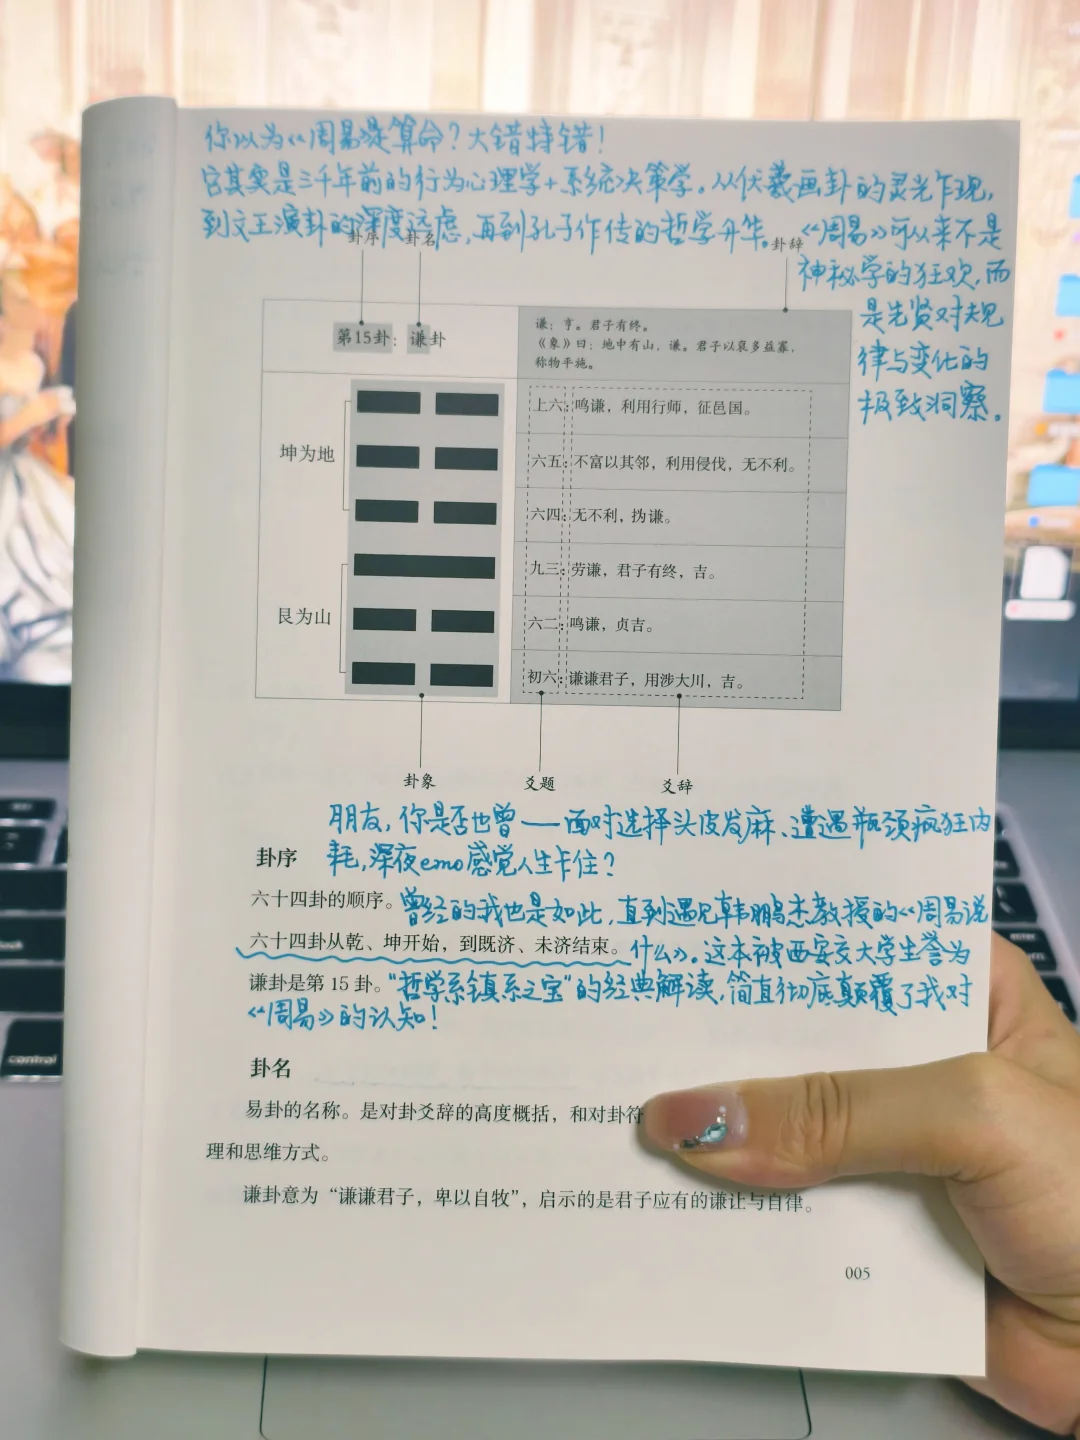 你以为《周易》是算命？大错特错！
它其实是三千年前的行为心理学+系统决策学。从伏羲画卦的灵光乍现，
到文王演卦的深度远虑，再到孔子作传的哲学升华。《周易》可从来不是
神秘学的狂欢，而
是先贤对规
律与变化的
极致洞察。
卦序 卦名 卦辞
第15卦：谦卦
谦：亨。君子有终。
《象》曰：地中有山，谦。君子以裒多益寡，
称物平施。
坤为地
艮为山
上六：鸣谦，利用行师，征邑国。
六五：不富以其邻，利用侵伐，无不利。
六四：无不利，㧑谦。
九三：劳谦，君子有终，吉。
六二：鸣谦，贞吉。
初六：谦谦君子，用涉大川，吉。
卦象 爻题 爻辞
朋友，你是否也曾——面对选择头皮发麻、遭遇瓶颈疯狂内
耗，深夜emo感觉人生卡住？
卦序
六十四卦的顺序。
曾经的我也是如此，直到遇见韩鹏杰教授的《周易说
六十四卦从乾、坤开始，到既济、未济结束。
什么》。这本被西安交大学生誉为
谦卦是第 15 卦。
“哲学系镇系之宝”的经典解读，简直彻底颠覆了我对
《周易》的认知！
卦名
易卦的名称。是对卦爻辞的高度概括，和对卦符
理和思维方式。
谦卦意为“谦谦君子，卑以自牧”，启示的是君子应有的谦让与自律。
005
control